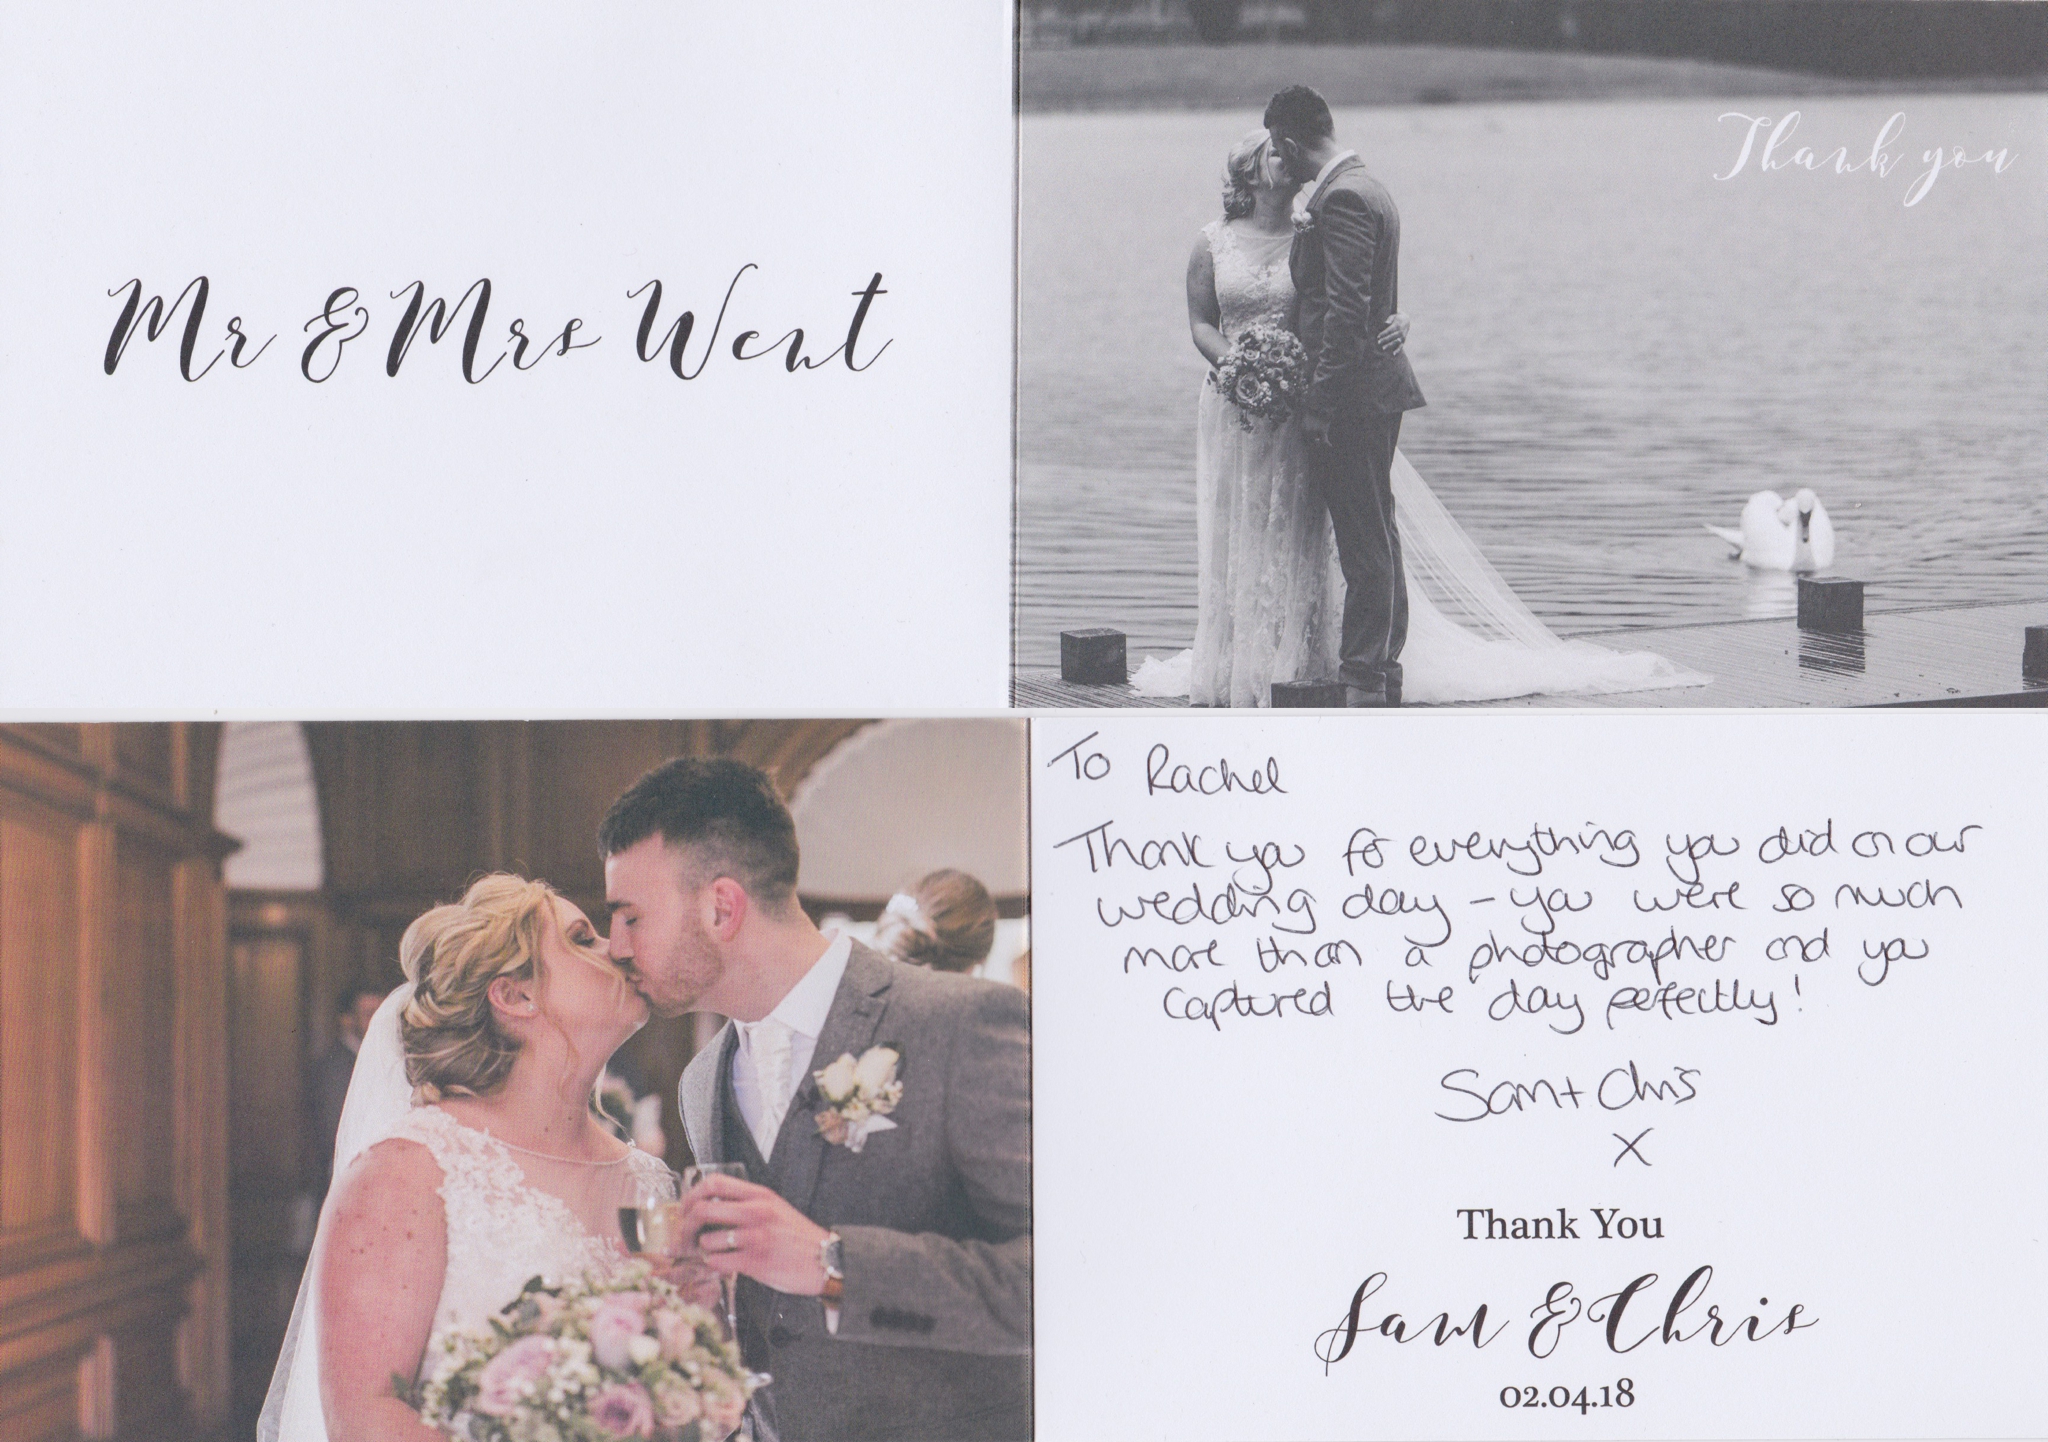 Mr & Mrs Went
Thank you
To Rachel
Thank you for everything you did on our
wedding day - you were so much
more than a photographer and you
captured the day perfectly!
Sam + Chris
X
Thank You
Sam & Chris
02.04.18